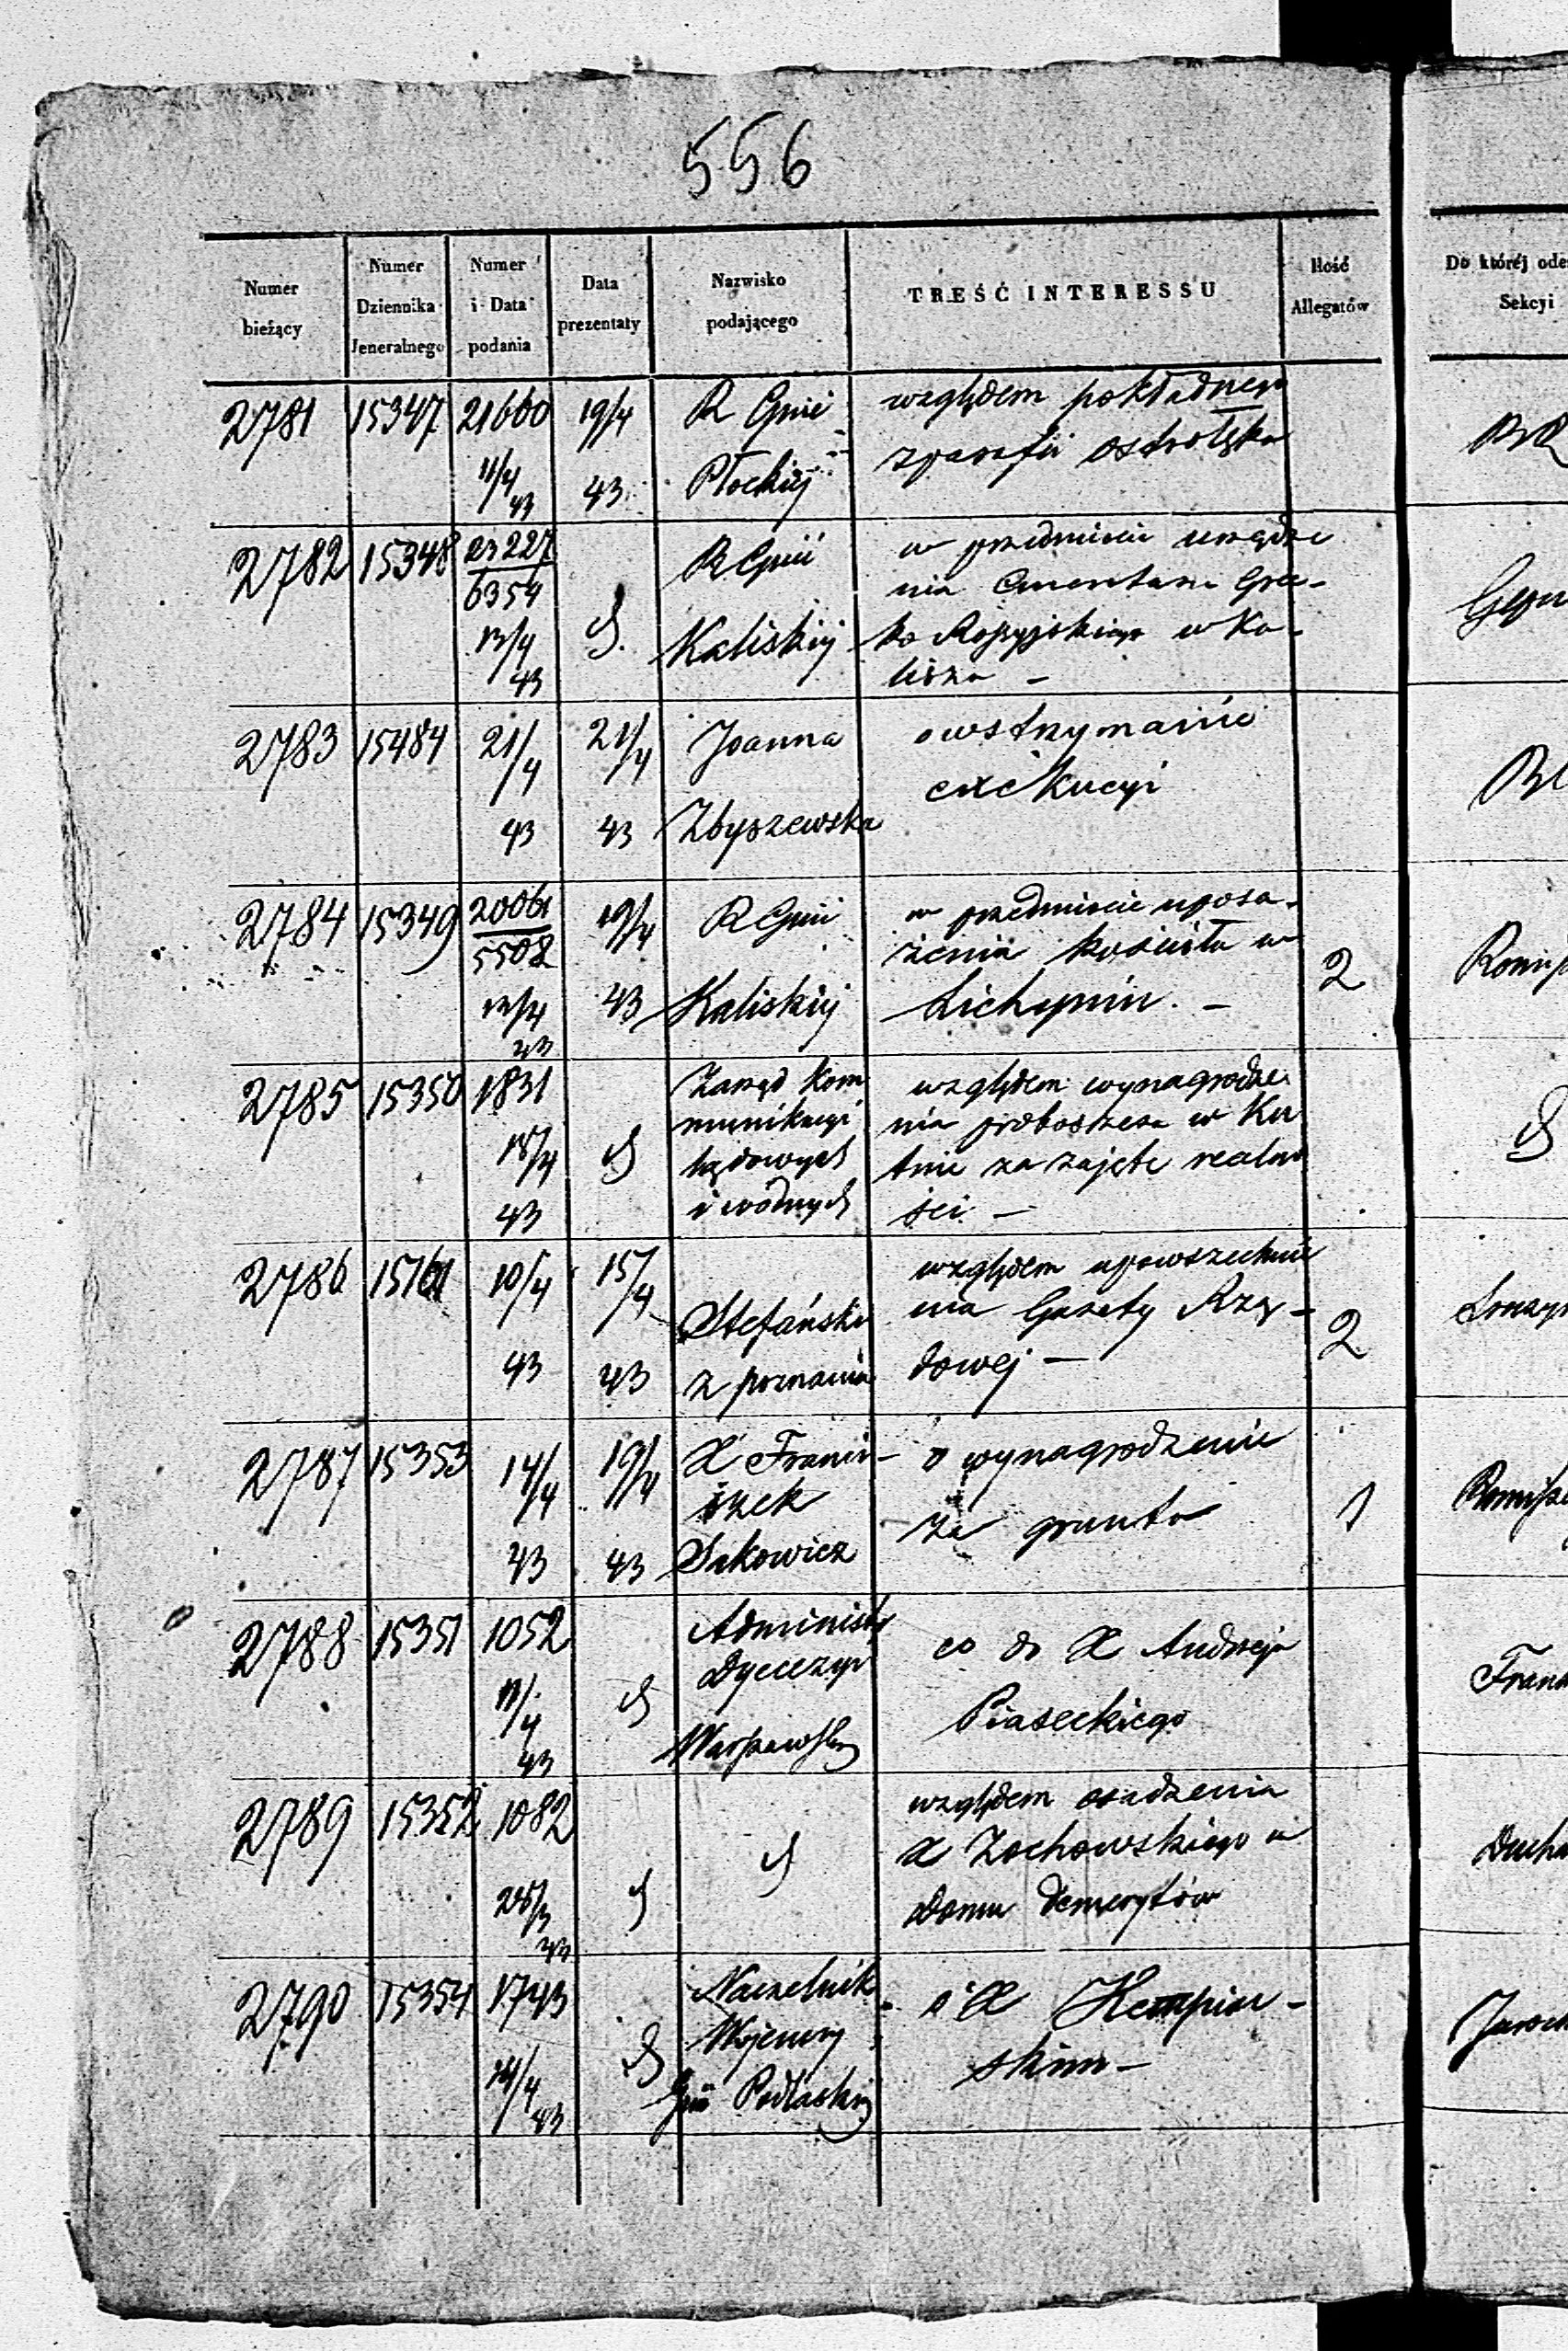 556
Numer bieżący
Numer Dziennika Jeneralnego
Numer i Data podania
Data prezentaty
Nazwisko podającego
TREŚĆ INTERESSU
Ilość Allegatów
Do któréj
Sekcyi
2781 15347 21600 11/4 43 19/4 43
R Gnii
Płockiej
względem pokładnego
z parafii Ostrołęka
2782 15348 23227 6354 13/4 43
R Gnii
Kaliskiej
w przedmiocie urządze
nia Cmentarza Grec-
ko Rossyjskiego w Ka-
liszu –
2783 15484 21/4 43 21/4 43
Joanna
Zbyszewska
o wstrzymanie
exekucyi
2784 15349 20061 5508 13/4 43 19/4 43
R Gnii
Kaliskiej
w przedmiocie uposa-
żenia kościoła w
Lichyniu. –
2
2785 15350 1831 18/4 43
Zarząd Kom
munikacyi
lądowych
i wodnych
względem wynagrodze
nia proboszcza w Ku
tnie za zajęte realno
ści –
2786 15161 10/4 43 15/4 43
Stefański
z poznania
względem upowszechnie
nia Gazety Rzą-
dowej –
2
2787 15353 14/4 43 19/4 43
X Franci-
szek
Sakowicz
o wynagrodzenie
za grunta
1
2788 15351 1052 11/4 43
Administr
Dyecezyi
Warszawskiej
co do X Andrzeja
Piaseckiego
2789 15352 1082 43
względem osadzenia
X Zochowskiego w
Domu Demerytów
2790 15354 1743 14/4 43
Naczelnik
Wojenny
Gnii Podlaskiej
o X Kempiń-
skim –